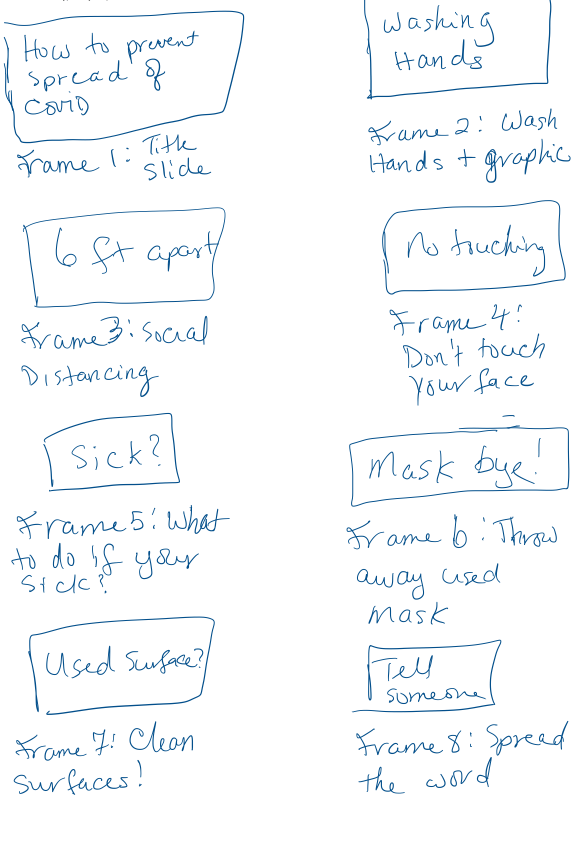 How to prevent
spread of
COVID
Frame 1: Title
Slide
Washing
Hands
Frame 2: Wash
Hands + graphic
6 ft apart
Frame 3: Social
Distancing
No touching
Frame 4:
Don't touch
your face
Sick?
Frame 5: What
to do if your
sick?
Mask bye!
Frame 6: Throw
away used
mask
Used surface?
Frame 7: Clean
surfaces!
Tell
someone
Frame 8: Spread
the word